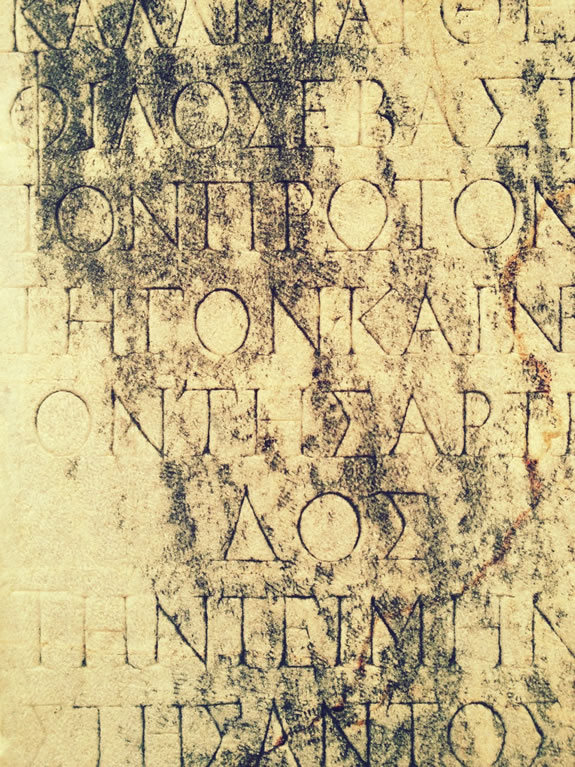 ΦΙΛΟΣΕΒΑΣΤ
ΤΟΝΠΡΩΤΟΝ
ΤΗΓΟΝΚΑΙΝΕ
ΟΝΤΗΣΑΡΤΕ
ΔΟΣ
ΤΗΝΤΕΙΜΗΝ
ΣΤΗΣΑΝΤΟΣ